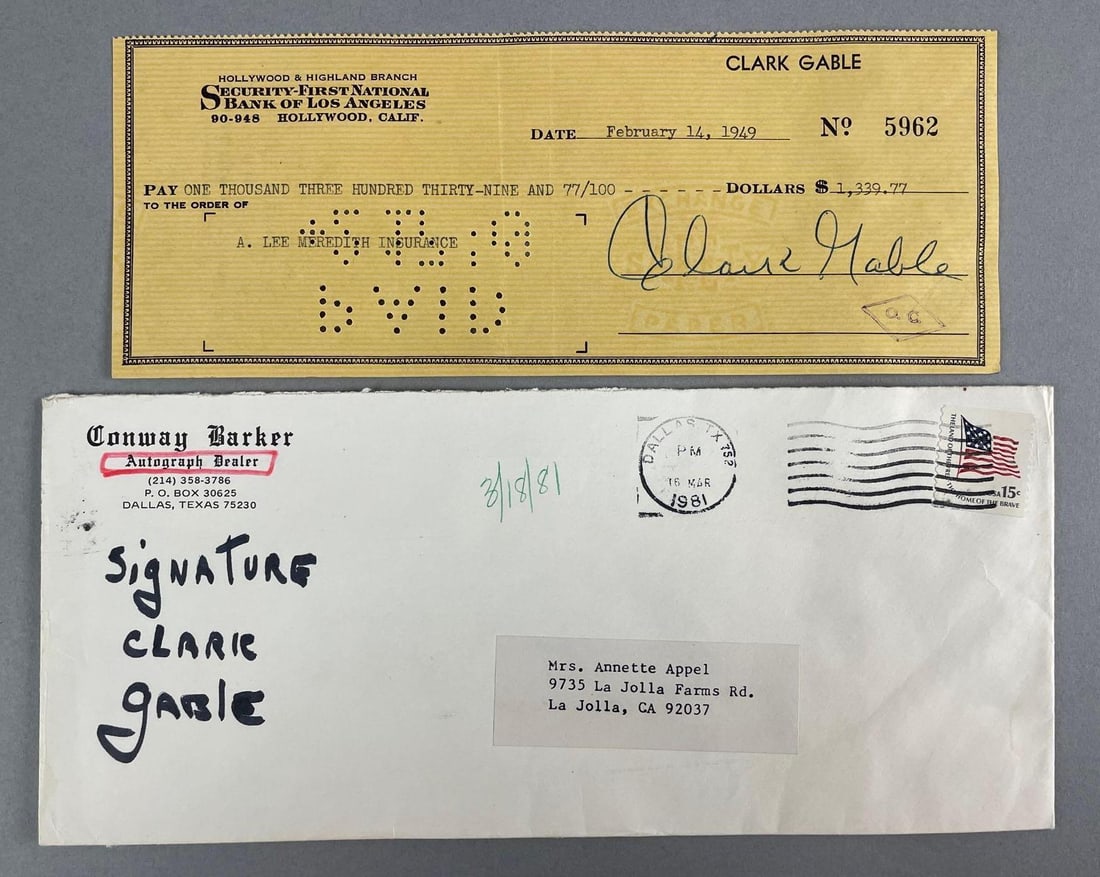 CLARK GABLE
HOLLYWOOD & HIGHLAND BRANCH
SECURITY-FIRST NATIONAL
BANK OF LOS ANGELES
90-948 HOLLYWOOD, CALIF.
DATE February 14, 1949 Nº 5962
PAY ONE THOUSAND THREE HUNDRED THIRTY-NINE AND 77/100 - - - - - - - DOLLARS $ 1,339.77
TO THE ORDER OF
A. LEE MEREDITH INSURANCE
Clark Gable
PAPER
PAID
Conway Barker
Autograph Dealer
(214) 358-3786
P. O. BOX 30625
DALLAS, TEXAS 75230
3/18/81
DALLAS, TX 752
PM
16 MAR
1981
THE LAND OF THE FREE
HOME OF THE BRAVE
USA 15c
SiGNATURE
CLARK
GABLE
Mrs. Annette Appel
9735 La Jolla Farms Rd.
La Jolla, CA 92037